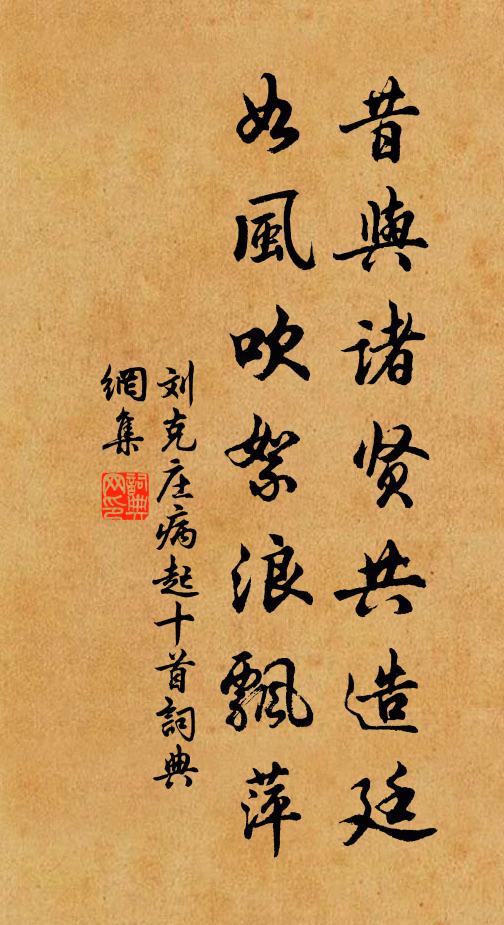 昔與诸贤共造廷
如風吹絮浪飄萍
刘克庄病起十首詞典
網集
詞典
网印